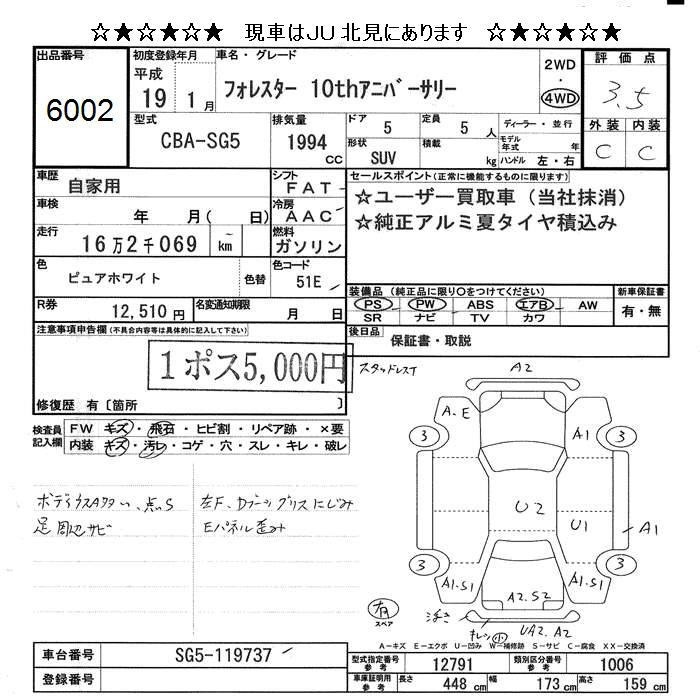 ☆★☆★☆★☆ 現車はJU北見にあります ☆★☆★☆★☆
出品番号
6002
初度登録年月
平成 19 1 月
車名・グレード
フォレスター 10thアニバーサリー
2WD
・
4WD
評価点
3.5
外装 内装
C C
型式
CBA-SG5
排気量
1994 CC
ドア
5
定員
5 人
形状
SUV
積載
kg
ディーラー・並行
モデル年式 年
ハンドル 左・右
車歴
自家用
シフト
FAT
車検
年 月( 日)
冷房
AAC
走行
16万2千069 ~ km
燃料
ガソリン
色
ピュアホワイト
色替
色コード
51E
R券
12,510 円
名変通知期限
月 日
セールスポイント(正常に機能するものに限ります)
☆ユーザー買取車(当社抹消)
☆純正アルミ夏タイヤ積込み
装備品(純正品に限り○をつけてください)
新車保証書
PS PW ABS エアB AW
SR ナビ TV カワ
有・無
後日品
保証書・取説
注意事項申告欄(不具合内容等は具体的に記入して下さい)
1ポス5,000円
修復歴 有〔箇所 〕
検査員記入欄
FW キズ・飛石・ヒビ割・リペア跡・×要
内装 キズ・汚レ・コゲ・穴・スレ・キレ・破レ
ボディウスA
足周辺サビ
左F、Dブーツグリスにじみ
Eパネル歪み
スタッドレス
A2
A.E
3
A1
3
U2
U1
A1
3
A1.S1
A2.S2
A1.S1
3
有
スペア
浮き
キレ小
UA2.A2
A－キズ E－エクボ U－凹み W－補修跡 S－サビ C－腐食 XX－交換済
車台番号
SG5-119737
登録番号
型式指定番号 参考
12791
類別区分番号 参考
1006
車庫証明用 参考
長さ 448 cm
幅 173 cm
高さ 159 cm